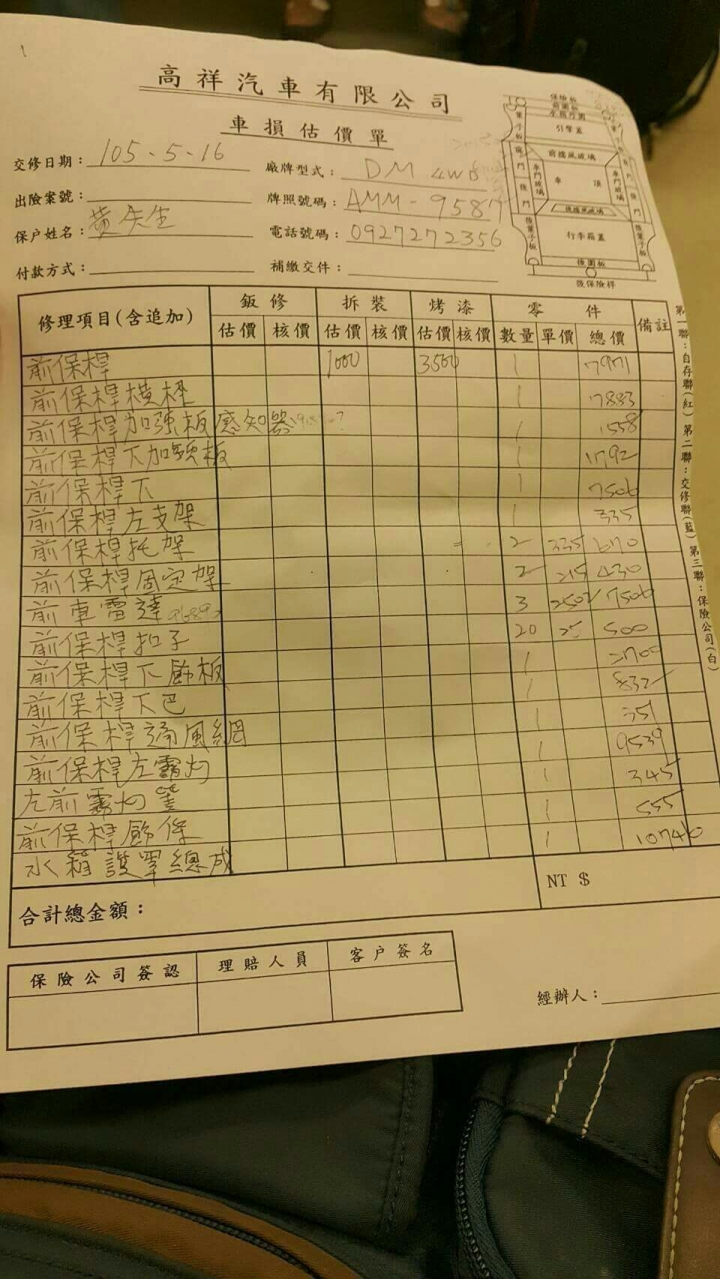 高祥汽車有限公司
車損估價單
交修日期：105-5-16 廠牌型式：DM 4WD
出險案號： 牌照號碼：AMM-9587
保户姓名：黃先生 電話號碼：0927272356
付款方式： 補繳交件：
保險桿
引擎蓋
前擋風玻璃
車頂
後擋風玻璃
行李箱蓋
後圍板
後保險桿
修理項目(含追加) 鈑修 拆裝 烤漆 零件 備註
估價 核價 估價 核價 估價 核價 數量 單價 總價
前保桿 1000 3500 1 7971
前保桿橫樑 1 7883
前保桿加強板 感知器 1 1558
前保桿下加強板 1 1792
前保桿下 1 7506
前保桿左支架 1 335
前保桿托架 2 335 670
前保桿固定架 2 215 430
前車雷達 3 2502 7506
前保桿扣子 20 25 500
前保桿下飾板 1 2700
前保桿下巴 1 832
前保桿通風網 1 351
前保桿左霧灯 1 9539
左前霧灯 1 345
前保桿飾條 1 555
水箱護罩總成 1 10746
合計總金額： NT $
保險公司簽認 理賠人員 客户簽名
經辦人：
第一聯：自存聯(紅) 第二聯：交修聯(藍) 第三聯：保險公司(白)